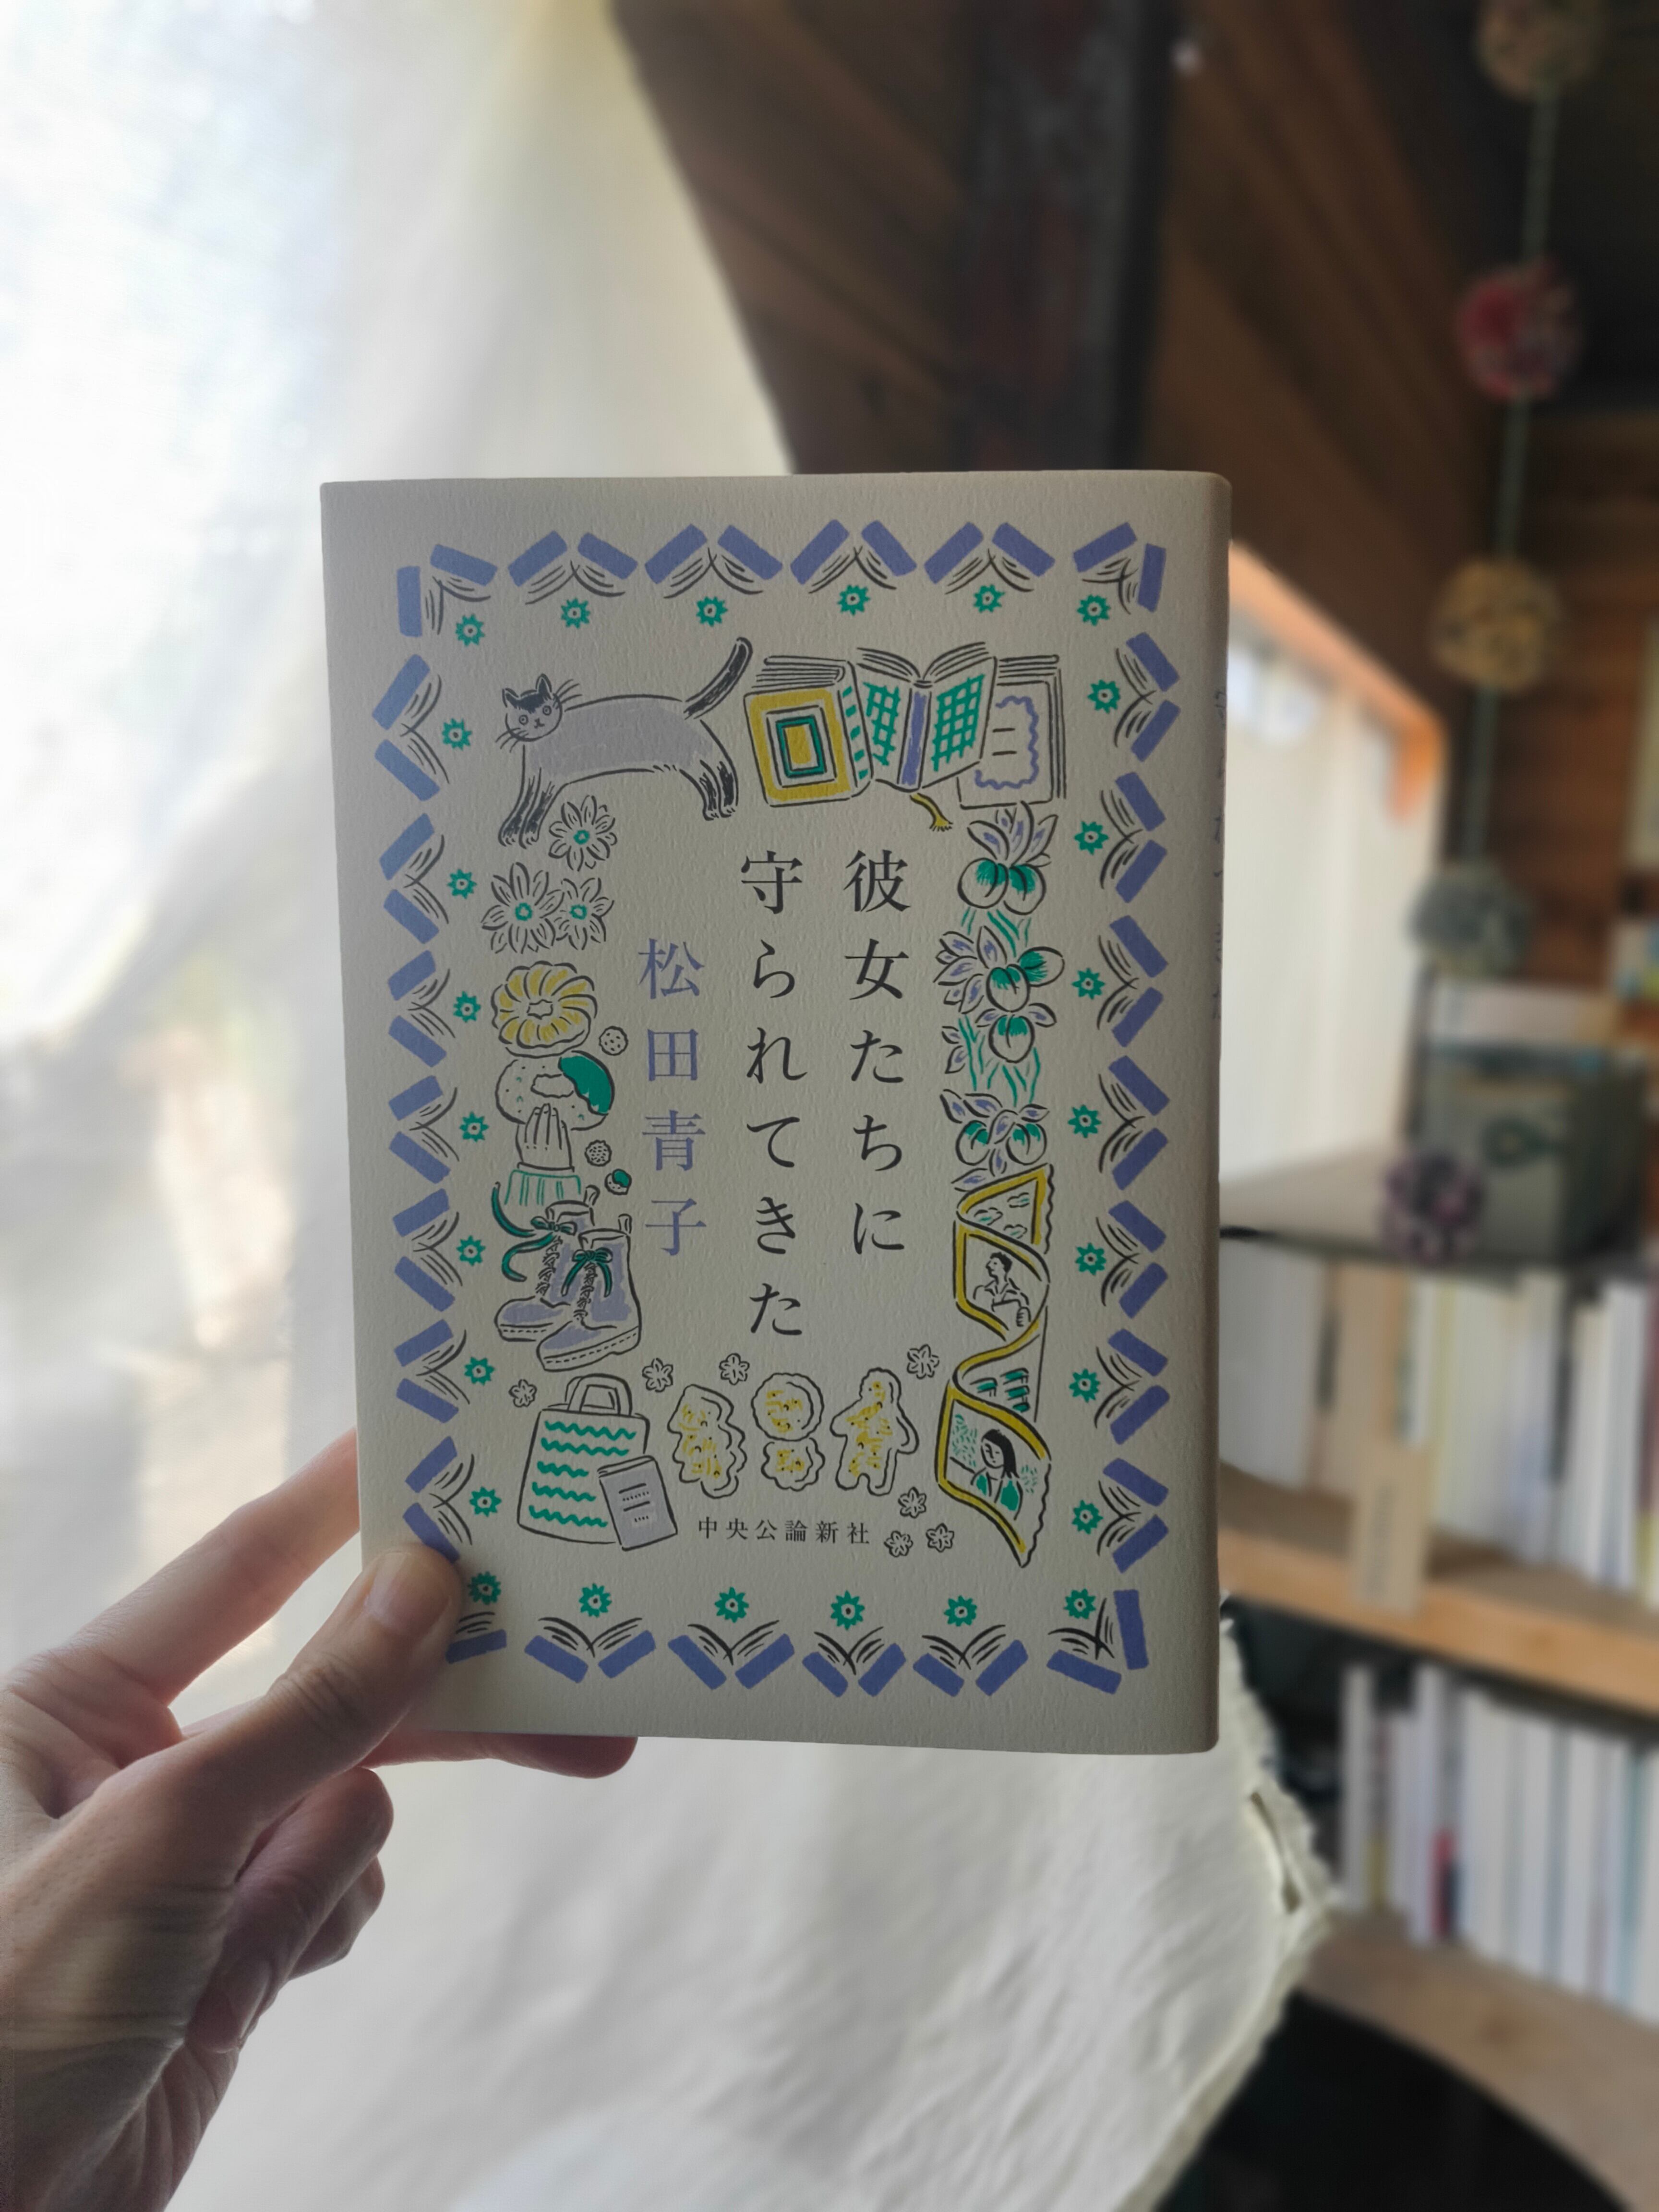 彼女たちに
守られてきた
松田青子
中央公論新社